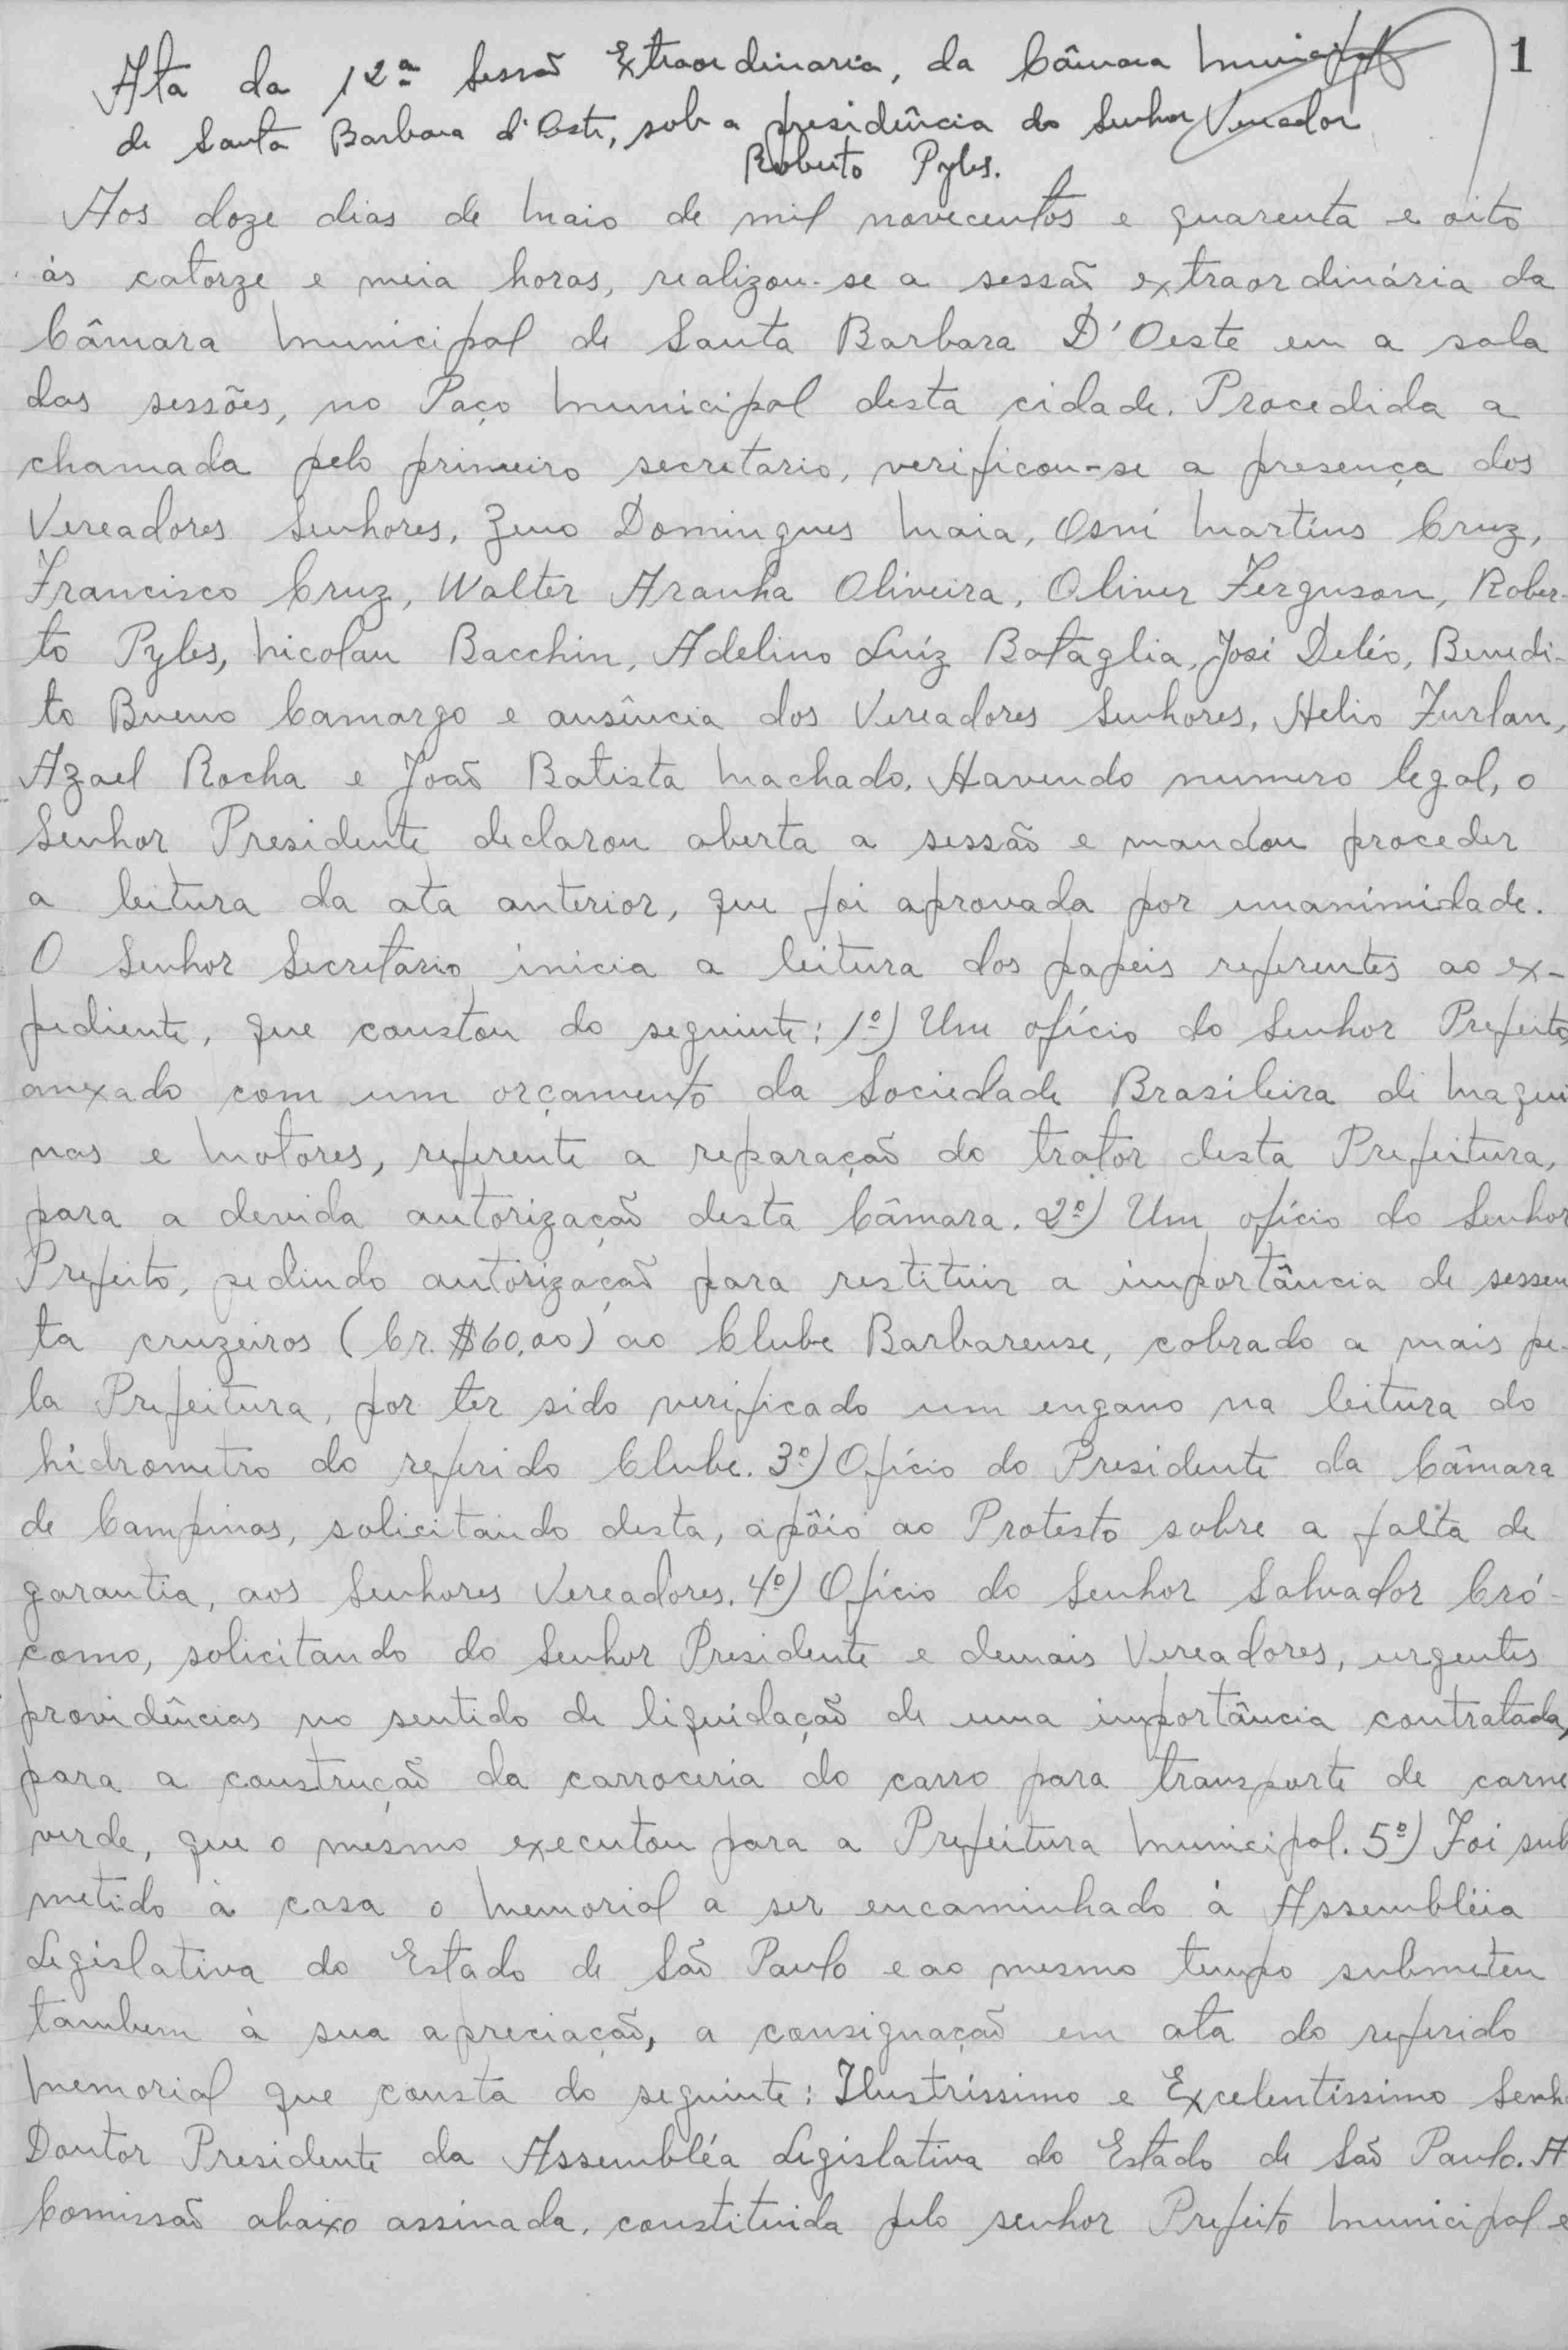 Ata da 12ª Sessão Extraordinaria, da Câmara Municipal
1
de Santa Barbara d'Oeste, sob a presidência do Senhor Vereador
Roberto Pyles.
Aos doze dias de Maio de mil novecentos e quarenta e oito
ás catorze e meia horas, realizou-se a sessão extraordinária da
Câmara Municipal de Santa Barbara D'Oeste em a sala
das sessões, no Paço Municipal desta cidade. Procedida a
chamada pelo primeiro secretario, verificou-se a presença dos
Vereadores Senhores, Zeno Domingues Maia, Osni Martins Cruz,
Francisco Cruz, Walter Aranha Oliveira, Oliver Ferguson, Rober-
to Pyles, Nicolau Bacchin, Adelino Luíz Bataglia, José Deléo, Benedi-
to Bueno Camargo e ausência dos Vereadores Senhores, Helio Furlan,
Azael Rocha e João Batista Machado. Havendo numero legal, o
Senhor Presidente declarou aberta a sessão e mandou proceder
a leitura da ata anterior, que foi aprovada por unanimidade.
O Senhor Secretário inicia a leitura dos papeis referentes ao ex-
pediente, que constou do seguinte: 1º) Um ofício do Senhor Prefeito,
anexado com um orçamento da Sociedade Brasileira de Maqui
nas e Motores, referente a reparação do trator desta Prefeitura,
para a devida autorização desta Câmara. 2º) Um ofício do Senhor
Prefeito, pedindo autorização para restituir a importância de sessen
ta cruzeiros (Cr. $60,00) ao Clube Barbarense, cobrado a mais pe-
la Prefeitura, por ter sido verificado um engano na leitura do
hidrometro do referido Clube. 3º) Ofício do Presidente da Câmara
de Campinas, solicitando desta, apôio ao Protesto sobre a falta de
garantia, aos Senhores Vereadores. 4º) Ofício do Senhor Salvador Cró-
como, solicitando do Senhor Presidente e demais Vereadores, urgentes
providências no sentido de liquidação de uma importância contratada,
para a construção da carroceria do carro para transporte de carne
verde, que o mesmo executou para a Prefeitura Municipal. 5º) Foi sub
metido à casa o Memorial a ser encaminhado á Assembléia
Legislativa do Estado de São Paulo e ao mesmo tempo submeteu
tambem à sua apreciação, a consignação em ata do referido
Memorial que consta do seguinte: Ilustríssimo e Excelentíssimo Senh
Doutor Presidente da Assembléa Legislativa do Estado de São Paulo. A
Comissão abaixo assinada, constituida pelo senhor Prefeito Municipal e